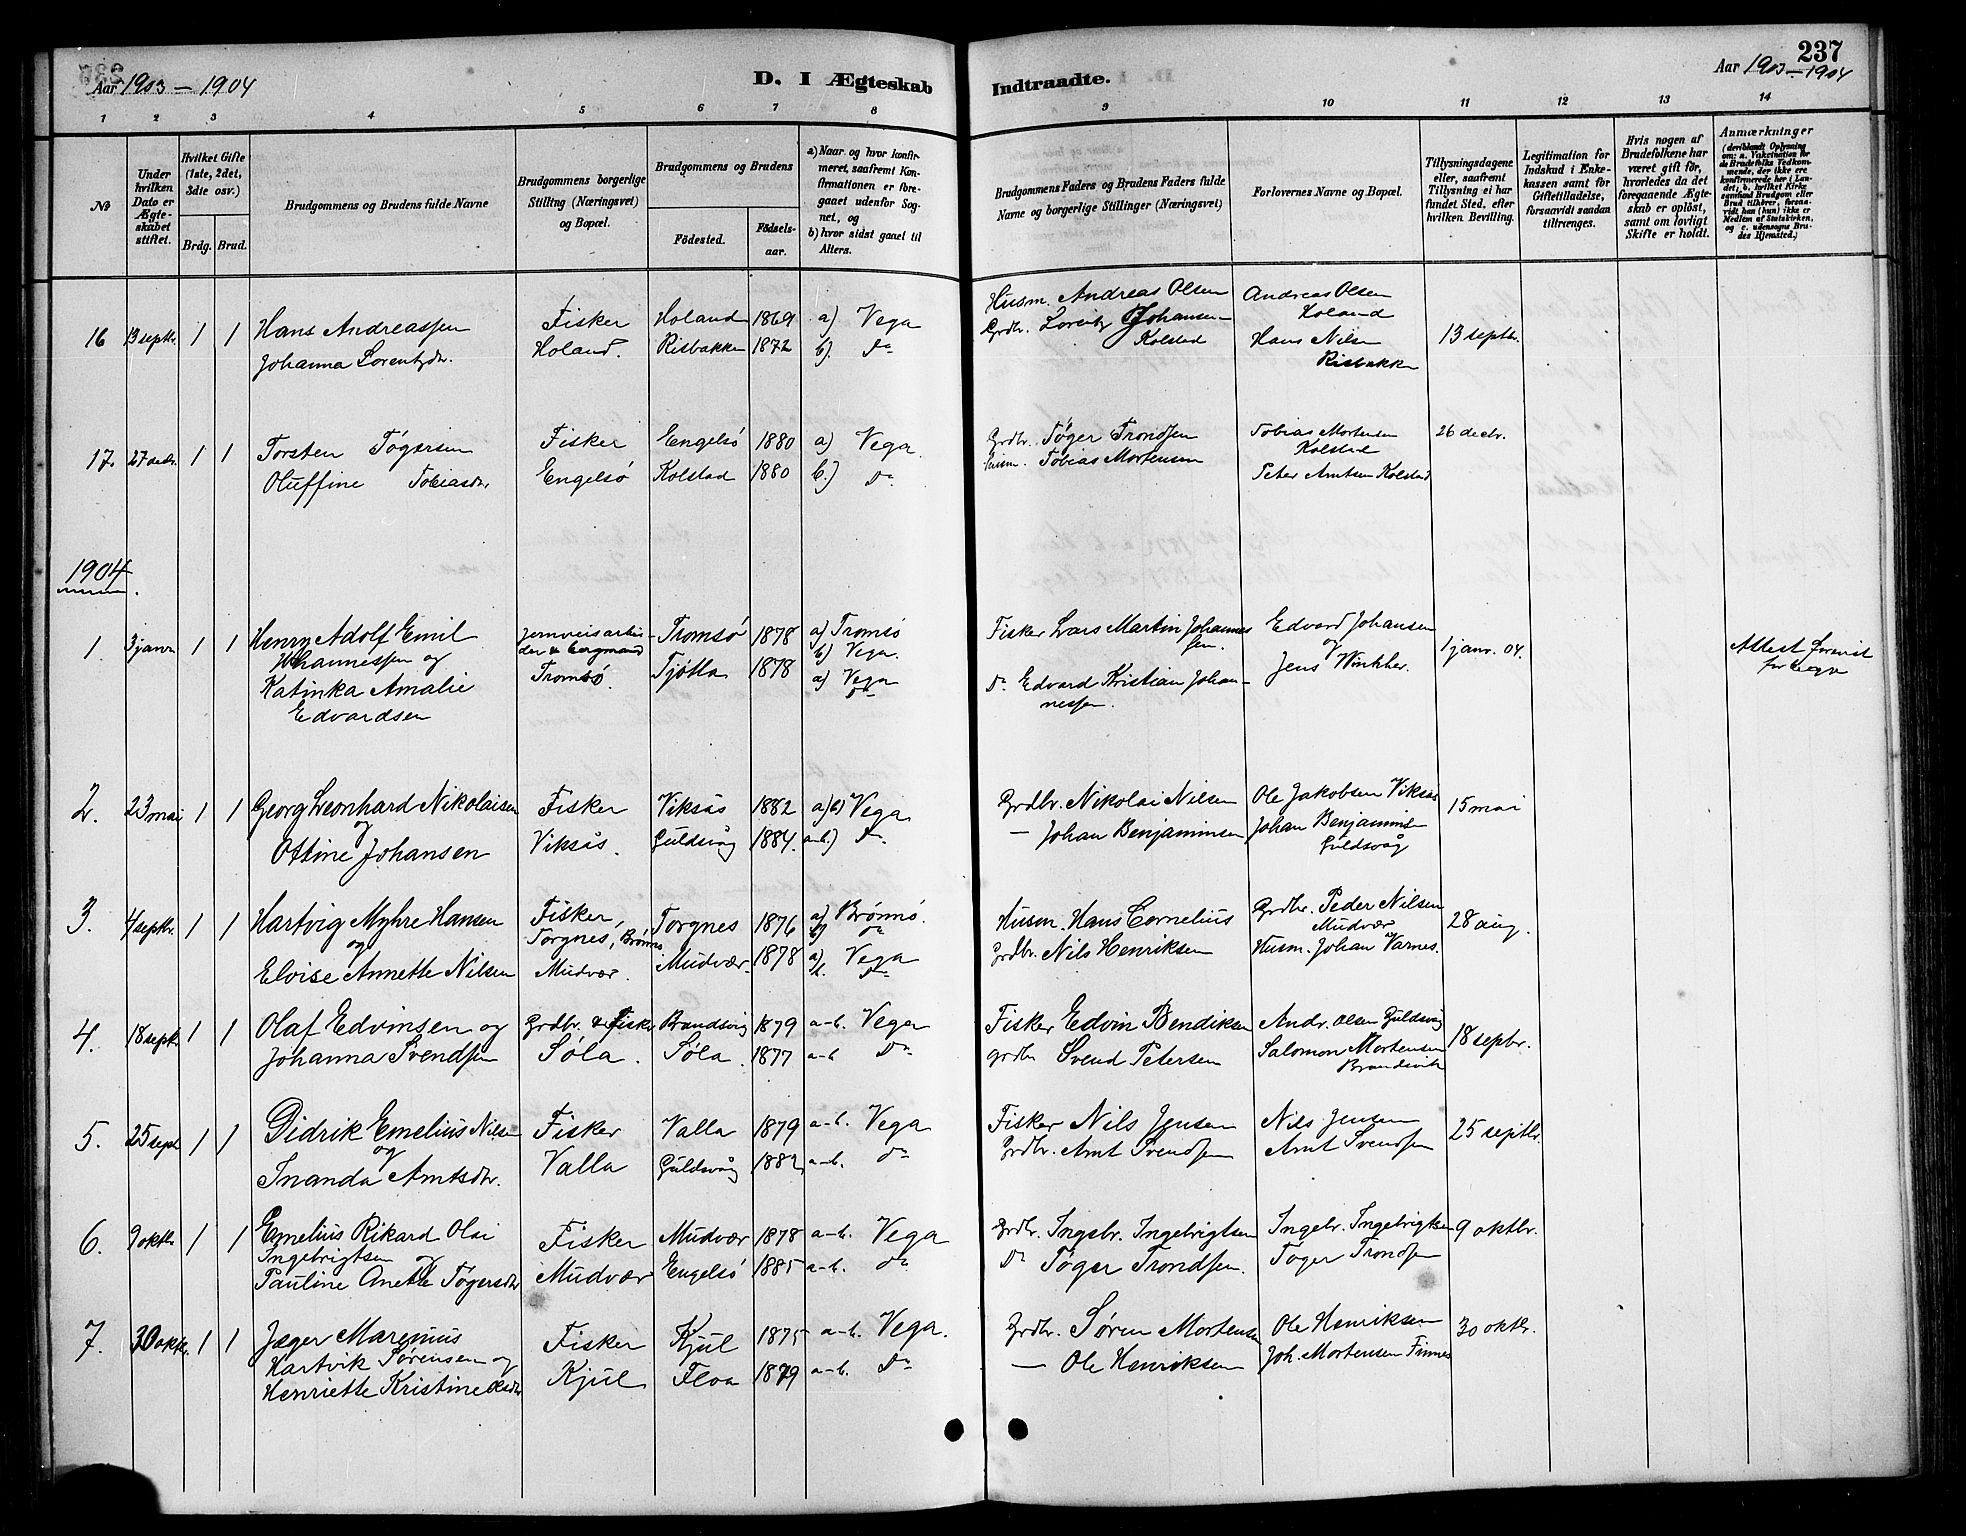 Aar 1903 – 1904
D. I Ægteskab
Indtraadte.
237
Aar 1903 – 1904
1 2 3 4 5 6 7 8 9 10 11 12 13 14
No
Under hvilken Dato er Ægteskabet stiftet.
Hvilket Gifte (1ste, 2det, 3die osv.)
Brdg. Brud.
Brudgommens og Brudens fulde Navne
Brudgommens borgerlige Stilling (Næringsvei) og Bopæl.
Brudgommens og Brudens
Födested. Födselsaar.
a) Naar og hvor konfirmeret, saafremt Konfirmationen er foregaaet udenfor Sognet, og
b) hvor sidst gaaet til Alters.
Brudgommens Faders og Brudens Faders fulde Navne og borgerlige Stillinger (Næringsvei)
Forlovernes Navne og Bopæl.
Tillysningsdagene eller, saafremt Tillysning ei har fundet Sted, efter hvilken Bevilling.
Legitimation for Indskud i Enkekassen samt for Giftetilladelse, forsaavidt saadan tiltrænges.
Hvis nogen af Brudefolkene har været gift før, hvorledes da det foregaaende Ægteskab er opløst, samt om lovligt Skifte er holdt.
Anmærkninger
(deriblandt Oplysning om: a. Vaksination for de Brudefolks Vedkommende, der ikke ere konfirmerede her i Landet, b. hvilket Kirkesamfund Brudgom eller Brud tilhører, forsaavidt han (hun) ikke er Medlem af Statskirken, og c. udensogns Brudes Hjemsted.)
16 13 septbr. 1 1 Hans Andreassen Fisker Holand 1869 a) Vega Husm. Andreas Olsen Andreas Olsen Holand 13 septbr.
Johanna Lorentzdr. Holand. Risbakken 1872 b). do Grdbr. Lorentz Johansen Kolstad Hans Nilsen Risbakken
17. 27 decbr. 1 1 Torsten Tøgersen Fisker Engelsø 1880 a) Vega Grdbr. Tøger Trondsen Tobias Mortensen Kolstad 26 decbr.
Oluffine Tobiasdtr Engelsø Kolstad 1880 b.) do Husm. Tobias Mortensen Peter Amtsen Kolstad
1904
1. 3 janr. 1 1 Henry Adolf Emil Jernveisarbeider & bergmand Tromsø 1878 a) Tromsø b) Vega. Fisker Lars Martin Johannessen. Edvard Johansen 1 janr. 04. Attest
Johannessen og Tromsø. Tjøtta 1878 a) Vega do og
Katinka Amalie do Edvard Kristian Johannessen. Jens Winther.
Edvardsen
2. 23 mai 1 1 Georg Leonhard Nikolaisen Fisker Viksås 1882 a) b) Vega Grdbr. Nikolai Nilsen Ole Jakobsen Viksås 15 mai
og
Ottine Johansen Viksås. Guldsvåg 1884. a–b.) do – Johan Benjaminsen Johan Benjaminsen Guldsvåg
3. 4 septbr. 1 1 Hartvig Myhre Hansen Fisker, Torgnes, Brønnø Torgnes 1876 a) Brønnø. b) do Husm. Hans Cornelius Grdbr. Peder Nilsen Mudvær 28 aug.
og
Elvise Annette Nilsen Mudvær. Mudvær. 1878 a) Vega b. do Grdbr. Nils Henriksen Husm. Johan Varnes.
4. 18 septbr. 1 1 Olaf Edvinsen og Grdbr. & Fisker Brandsvig 1879 a–b. Vega Fisker Edvin Bendiksen Andr. Olsen Guldsvåg 18 septbr.
Johanna Svendsen Søla. Søla. 1877 a–b do grdbr Svend Petersen Salomon Mortensen Brandsvik
5. 25 sept 1 1 Didrik Emelius Nilsen Fisker Valla 1879 a–b. Vega Fisker Nils Jensen Nils Jensen 25 septbr.
og
Inanda Amtsdtr. Valla Guldsvåg 1882 a–b. do Grdbr. Amt Svendsen Amt Svendsen
6. 9 oktbr 1 1 Emelius Rikard Olai Fisker Mudvær 1878 a–b. Vega Grdbr. Ingebr. Ingebrigtsen Ingebr. Ingebrigtsen 9 oktbr.
Ingebrigtsen og
Pauline Anette Tøgersdtr Mudvær Engelsø 1885 a–b. do do Tøger Trondsen. Tøger Trondsen
7. 30 oktbr. 1 1 Jæger Marenius Fisker Kjul 1875 a–b. Vega. Grdbr. Søren Mortensen Ole Henriksen 30 oktbr.
Hartvik Sørensen og
Henriette Kristine Olsdtr Kjul Floa 1879 a–b. do – Ole Henriksen Joh. Mortensen Finnes